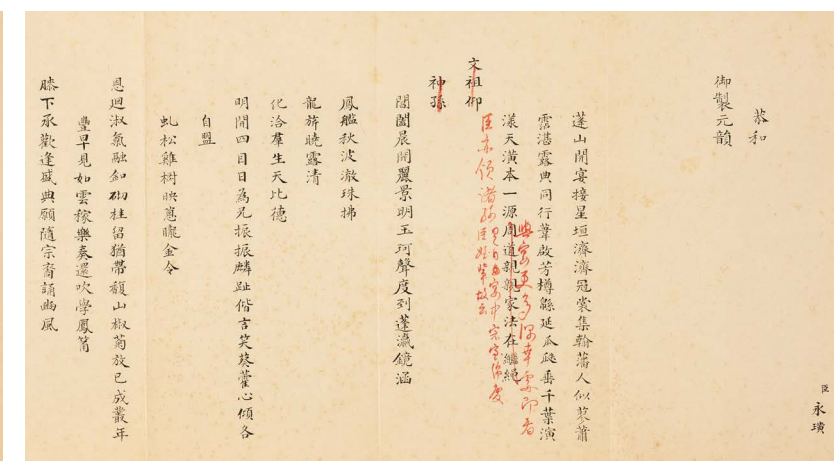 臣永璜
恭和
御製元韻
蓬山開宴接星垣濟濟冠裳集翰藩人似蓼蕭
雲湛露典同行葦啟芳樽緜延瓜瓞垂千葉演
漾天潢本一源周道親親家法在繼繩
文祖御
神孫
閶闔晨開麗景明玉珂聲度到蓬瀛鏡涵
鳳艦秋波澈珠拂
龍旂曉露清
化洽羣生天比德
明開四目日為兄振振麟趾偕言笑葵藿心傾各
自盟
虬松雞樹映蔥蘢金令
恩迴淑氣融釦砌桂留猶帶馥山椒菊放已成叢年
豐早見如雲稼樂奏還吹學鳳簫
膝下承歡逢盛典願隨宗裔誦豳風